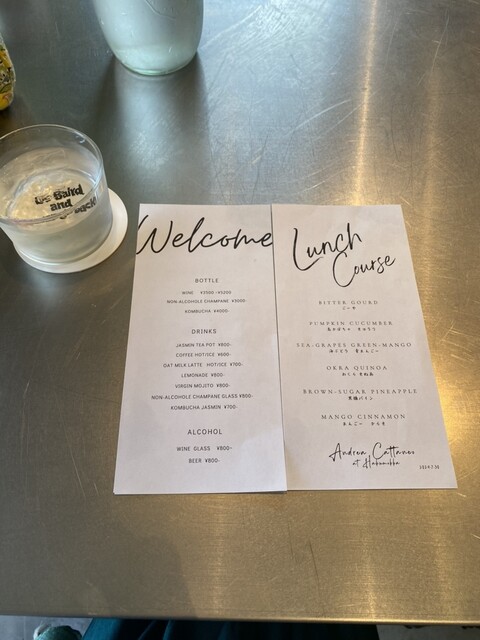 Us Baird
and
Welcome
BOTTLE
WINE ¥3500-¥5200
NON-ALCOHOLE CHAMPANE ¥3000-
KOMBUCHA ¥4000-
DRINKS
JASMIN TEA POT ¥800-
COFFEE HOT/ICE ¥600-
OAT MILK LATTE HOT/ICE ¥700-
LEMONADE ¥600-
VIRGIN MOJITO ¥800-
NON-ALCOHOLE CHAMPANE GLASS ¥800-
KOMBUCHA JASMIN ¥700-
ALCOHOL
WINE GLASS ¥800-
BEER ¥800-
Lunch
Course
BITTER GOURD
ごーや
PUMPKIN CUCUMBER
かぼちゃ きゅうり
SEA-GRAPES GREEN-MANGO
海ぶどう 青まんごー
OKRA QUINOA
おくら きぬあ
BROWN-SUGAR PINEAPPLE
黒糖パイン
MANGO CINNAMON
まんごー からき
Andrea Cattaneo
at Hakomokka
2024.7.30